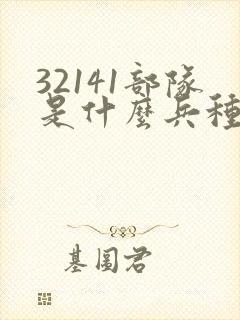 32141部隊
是什麼兵種
基圖君